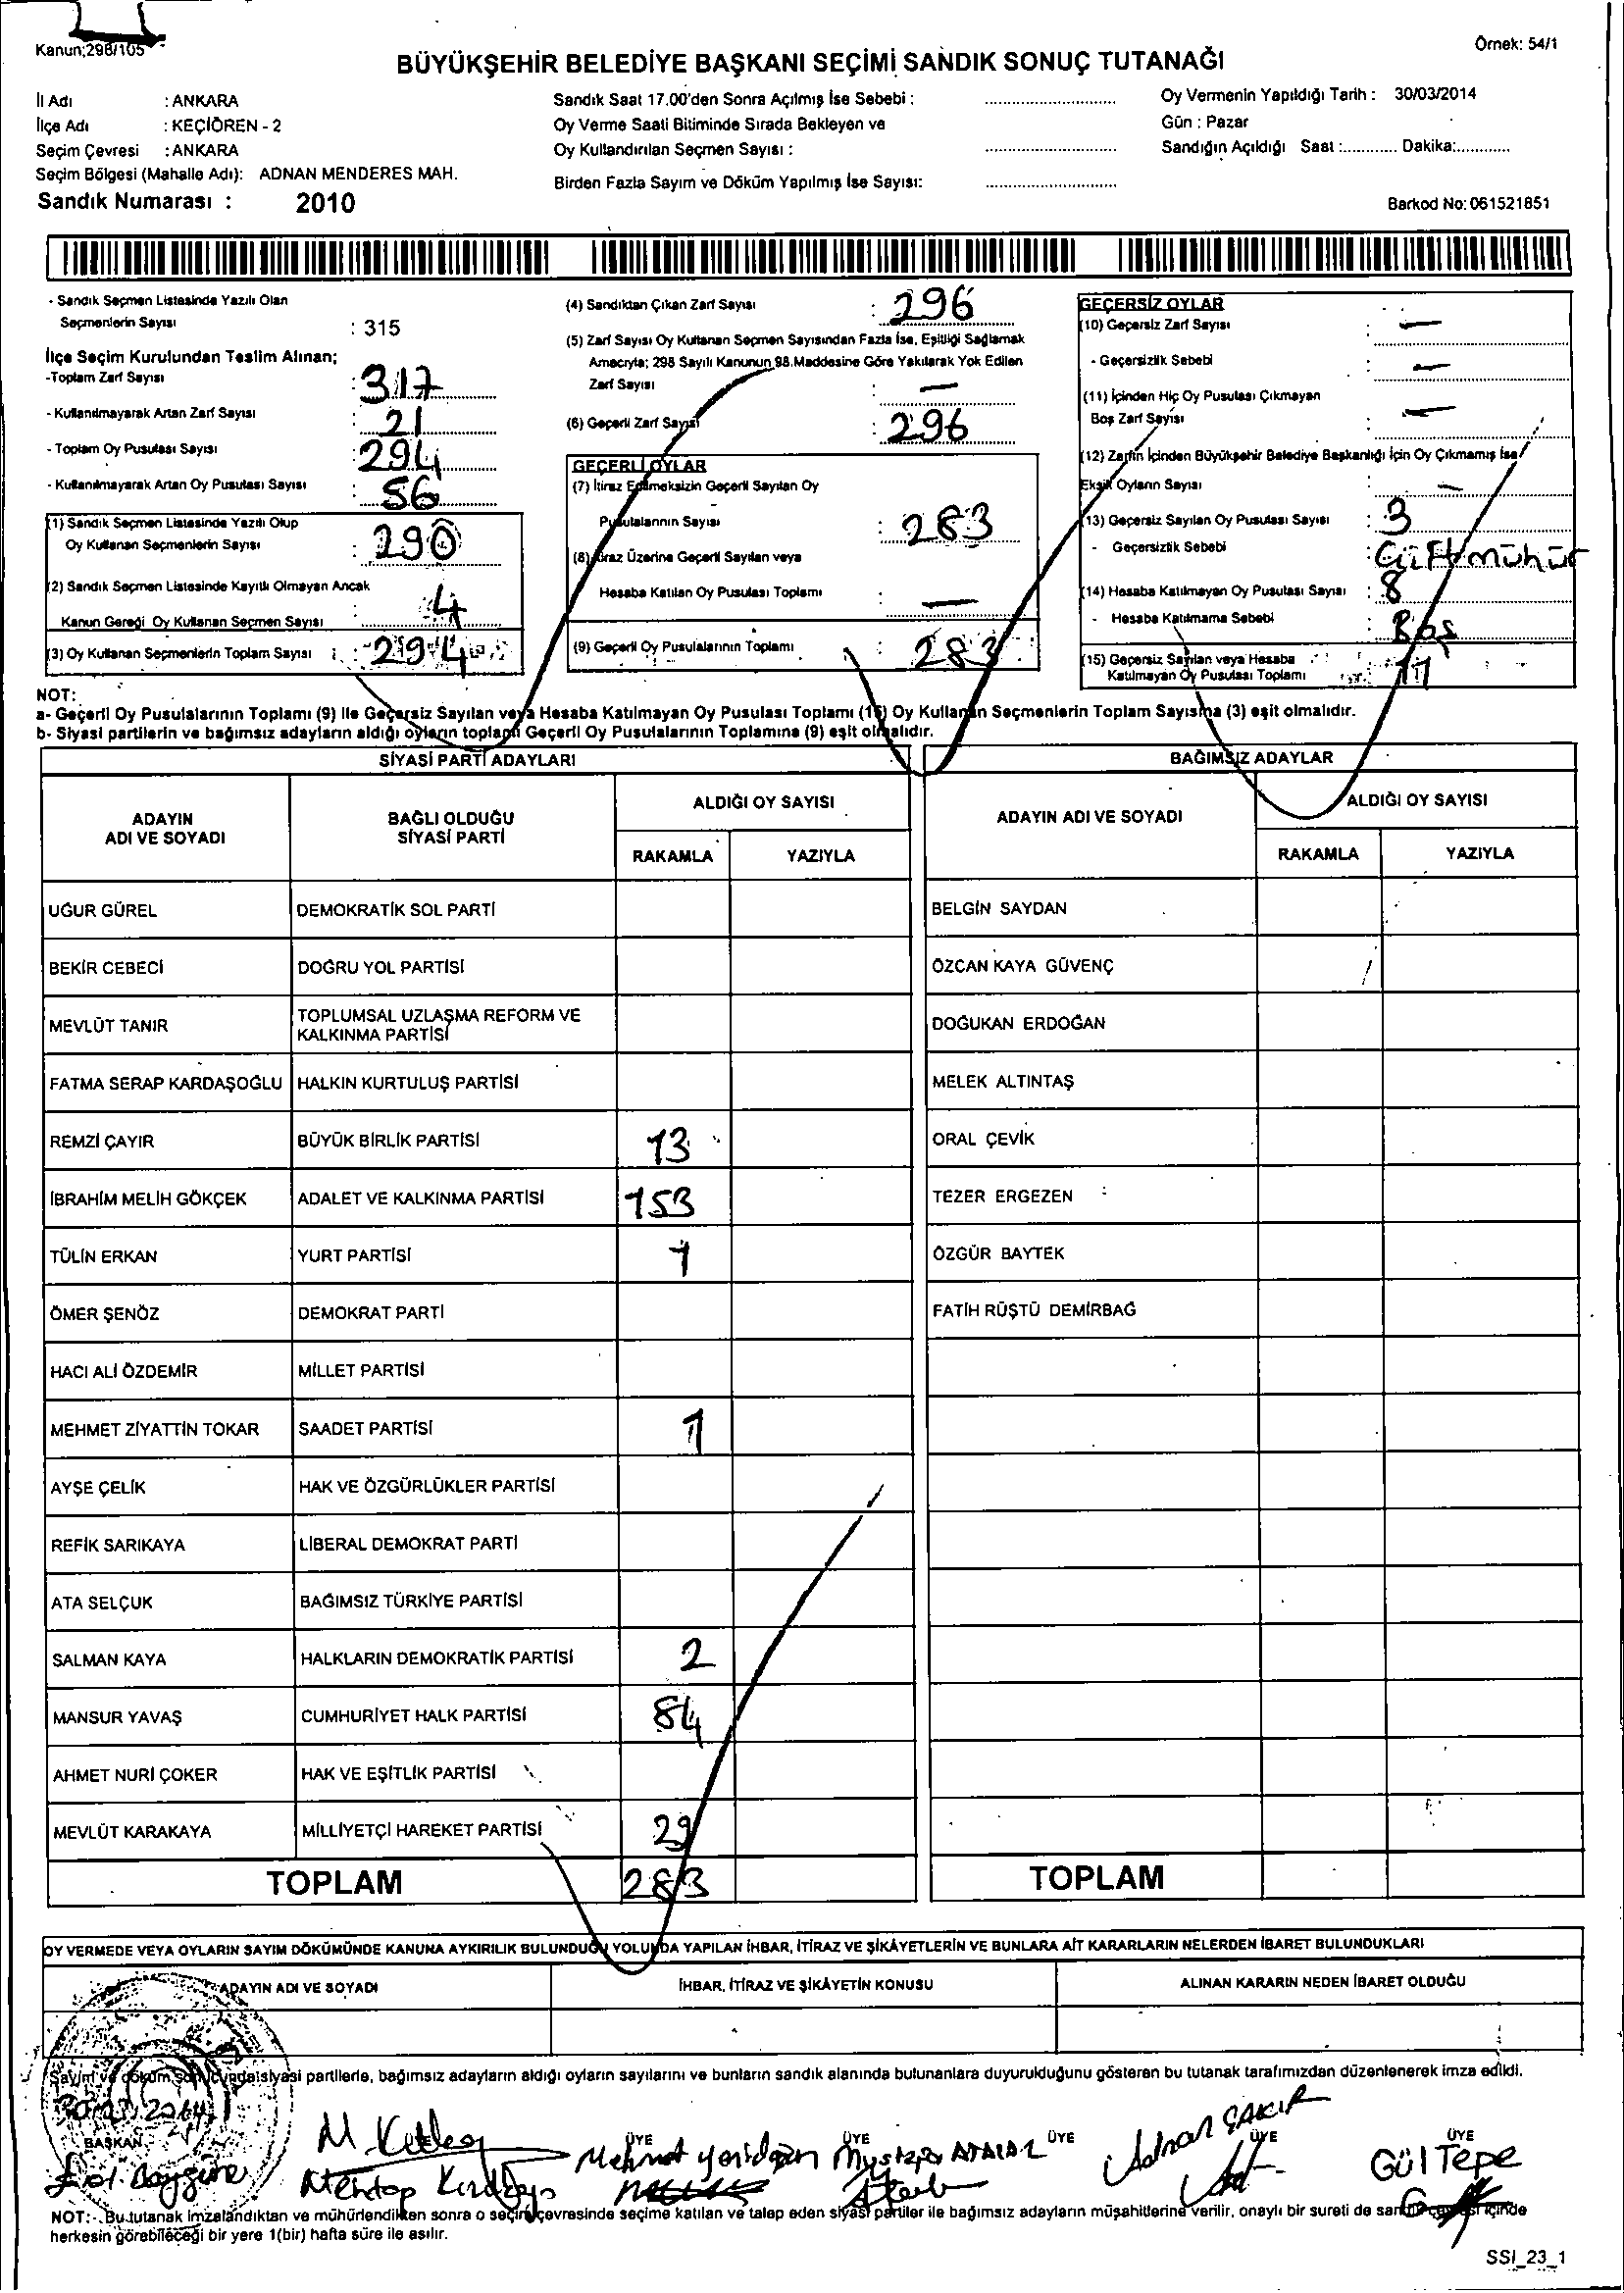 Kanun;298/105
Örnek: 54/1
BÜYÜKŞEHİR BELEDİYE BAŞKANI SEÇİMİ SANDIK SONUÇ TUTANAĞI
İl Adı : ANKARA
İlçe Adı : KEÇİÖREN - 2
Seçim Çevresi : ANKARA
Seçim Bölgesi (Mahalle Adı): ADNAN MENDERES MAH.
Sandık Numarası : 2010
Sandık Saat 17.00'den Sonra Açılmış İse Sebebi :
Oy Verme Saati Bitiminde Sırada Bekleyen ve
Oy Kullandırılan Seçmen Sayısı :
Birden Fazla Sayım ve Döküm Yapılmış İse Sayısı:
Oy Vermenin Yapıldığı Tarih : 30/03/2014
Gün : Pazar
Sandığın Açıldığı Saat :............ Dakika:............
Barkod No: 061521851
- Sandık Seçmen Listesinde Yazılı Olan
Seçmenlerin Sayısı : 315
İlçe Seçim Kurulundan Teslim Alınan;
-Toplam Zarf Sayısı : 317
- Kullanılmayarak Artan Zarf Sayısı : 21
- Toplam Oy Pusulası Sayısı : 294
- Kullanılmayarak Artan Oy Pusulası Sayısı : 56
(1) Sandık Seçmen Listesinde Yazılı Olup
Oy Kullanan Seçmenlerin Sayısı : 290
(2) Sandık Seçmen Listesinde Kayıtlı Olmayan Ancak
Kanun Gereği Oy Kullanan Seçmen Sayısı : 4
(3) Oy Kullanan Seçmenlerin Toplam Sayısı : 294
(4) Sandıktan Çıkan Zarf Sayısı : 296
(5) Zarf Sayısı Oy Kullanan Seçmen Sayısından Fazla İse, Eşitliği Sağlamak
Amacıyla; 298 Sayılı Kanunun 98.Maddesine Göre Yakılarak Yok Edilen
Zarf Sayısı : —
(6) Geçerli Zarf Sayısı : 296
GEÇERLİ OYLAR
(7) İtiraz Edilmeksizin Geçerli Sayılan Oy
Pusulalarının Sayısı : 283
(8) İtiraz Üzerine Geçerli Sayılan veya
Hesaba Katılan Oy Pusulası Toplamı : —
(9) Geçerli Oy Pusulalarının Toplamı : 283
GEÇERSİZ OYLAR
(10) Geçersiz Zarf Sayısı : —
- Geçersizlik Sebebi : —
(11) İçinden Hiç Oy Pusulası Çıkmayan
Boş Zarf Sayısı : —
(12) Zarfın İçinden Büyükşehir Belediye Başkanlığı İçin Oy Çıkmamış İse
Eksik Oyların Sayısı : —
(13) Geçersiz Sayılan Oy Pusulası Sayısı : 3
- Geçersizlik Sebebi : Çift mühür
(14) Hesaba Katılmayan Oy Pusulası Sayısı : 8
- Hesaba Katılmama Sebebi : Boş
(15) Geçersiz Sayılan veya Hesaba
Katılmayan Oy Pusulası Toplamı : 11
NOT:
a- Geçerli Oy Pusulalarının Toplamı (9) ile Geçersiz Sayılan veya Hesaba Katılmayan Oy Pusulası Toplamı (15) Oy Kullanan Seçmenlerin Toplam Sayısına (3) eşit olmalıdır.
b- Siyasi partilerin ve bağımsız adayların aldığı oyların toplamı Geçerli Oy Pusulalarının Toplamına (9) eşit olmalıdır.
SİYASİ PARTİ ADAYLARI
ADAYIN ADI VE SOYADI BAĞLI OLDUĞU SİYASİ PARTİ ALDIĞI OY SAYISI
RAKAMLA YAZIYLA
UĞUR GÜREL DEMOKRATİK SOL PARTİ
BEKİR CEBECİ DOĞRU YOL PARTİSİ
MEVLÜT TANIR TOPLUMSAL UZLAŞMA REFORM VE KALKINMA PARTİSİ
FATMA SERAP KARDAŞOĞLU HALKIN KURTULUŞ PARTİSİ
REMZİ ÇAYIR BÜYÜK BİRLİK PARTİSİ 13
İBRAHİM MELİH GÖKÇEK ADALET VE KALKINMA PARTİSİ 153
TÜLİN ERKAN YURT PARTİSİ 1
ÖMER ŞENÖZ DEMOKRAT PARTİ
HACI ALİ ÖZDEMİR MİLLET PARTİSİ
MEHMET ZİYATTİN TOKAR SAADET PARTİSİ 1
AYŞE ÇELİK HAK VE ÖZGÜRLÜKLER PARTİSİ
REFİK SARIKAYA LİBERAL DEMOKRAT PARTİ
ATA SELÇUK BAĞIMSIZ TÜRKİYE PARTİSİ
SALMAN KAYA HALKLARIN DEMOKRATİK PARTİSİ 2
MANSUR YAVAŞ CUMHURİYET HALK PARTİSİ 84
AHMET NURİ ÇOKER HAK VE EŞİTLİK PARTİSİ
MEVLÜT KARAKAYA MİLLİYETÇİ HAREKET PARTİSİ 29
TOPLAM 283
BAĞIMSIZ ADAYLAR
ADAYIN ADI VE SOYADI ALDIĞI OY SAYISI
RAKAMLA YAZIYLA
BELGİN SAYDAN
ÖZCAN KAYA GÜVENÇ
DOĞUKAN ERDOĞAN
MELEK ALTINTAŞ
ORAL ÇEVİK
TEZER ERGEZEN
ÖZGÜR BAYTEK
FATİH RÜŞTÜ DEMİRBAĞ
TOPLAM
OY VERMEDE VEYA OYLARIN SAYIM DÖKÜMÜNDE KANUNA AYKIRILIK BULUNDUĞU YOLUNDA YAPILAN İHBAR, İTİRAZ VE ŞİKÂYETLERİN VE BUNLARA AİT KARARLARIN NELERDEN İBARET BULUNDUKLARI
ADAYIN ADI VE SOYADI İHBAR, İTİRAZ VE ŞİKÂYETİN KONUSU ALINAN KARARIN NEDEN İBARET OLDUĞU
Sayım ve döküm sonucunda siyasi partilerle, bağımsız adayların aldığı oyların sayılarını ve bunların sandık alanında bulunanlara duyurulduğunu gösteren bu tutanak tarafımızdan düzenlenerek imza edildi.
BAŞKAN ÜYE ÜYE ÜYE ÜYE ÜYE
Mehmet Mustafa Adnan ÇAKIR Gül Tepe
NOT:- Bu tutanak imzalandıktan ve mühürlendikten sonra o seçim çevresinde seçime katılan ve talep eden siyasi partiler ile bağımsız adayların müşahitlerine verilir, onaylı bir sureti de sandık çevresi içinde
herkesin görebileceği bir yere 1(bir) hafta süre ile asılır.
SSI_23_1